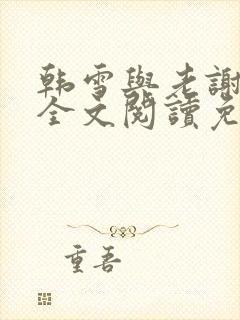 韩雪與老謝
全文閱讀免
重吾